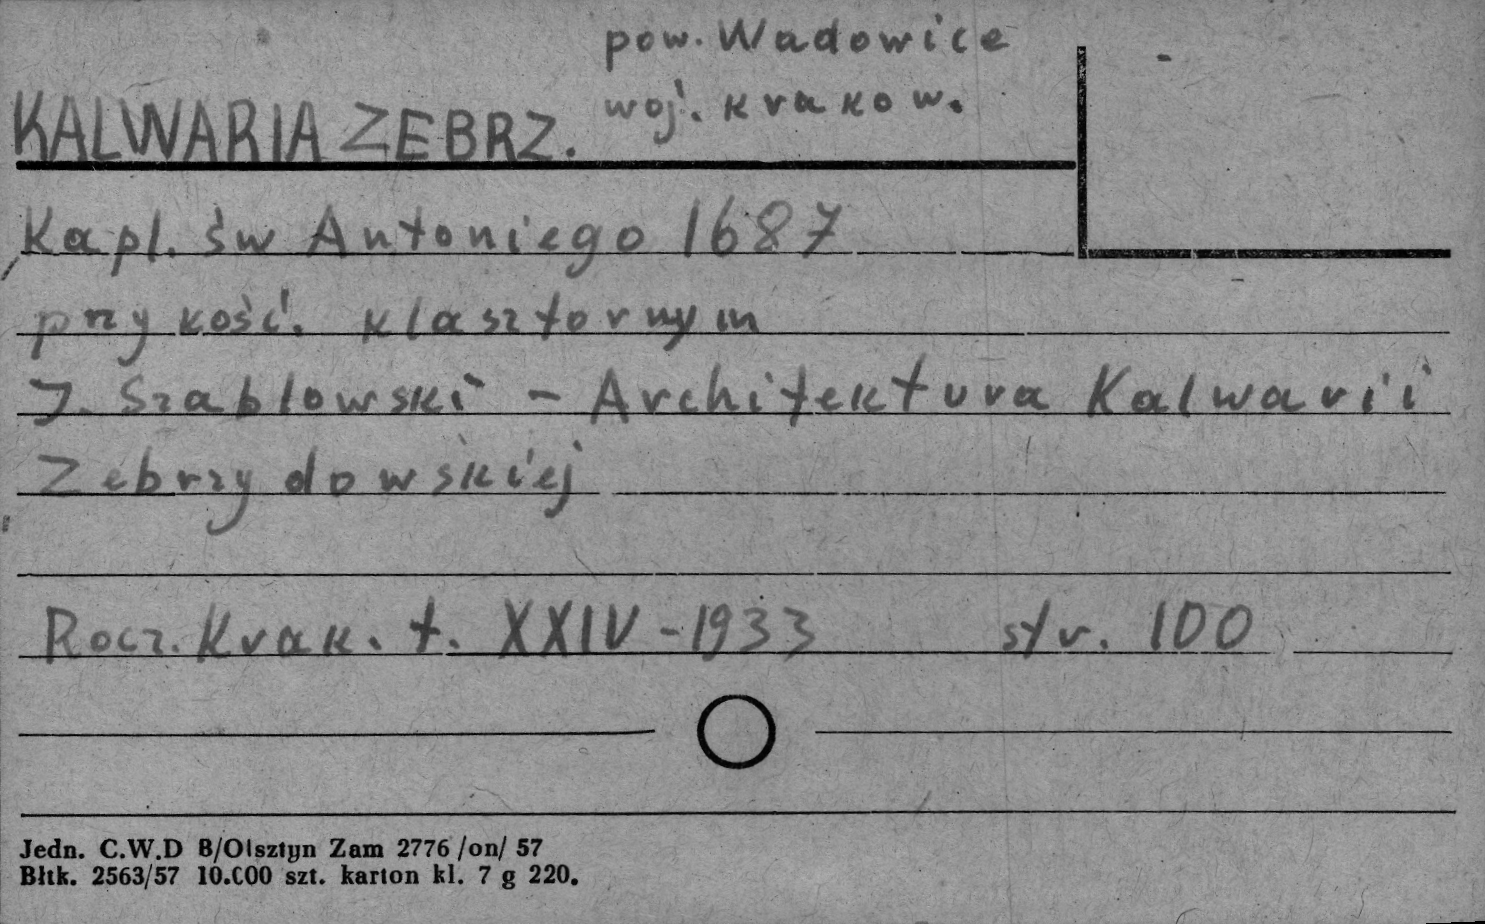 pow. Wadowice
KALWARIA ZEBRZ. woj. krakow.
Kapl. św Antoniego 1687
przy kość. klasztornym
J. Szablowski - Architektura Kalwarii
Zebrzydowskiej
Rocz. Krak. t. XXIV - 1933 str. 100
Jedn. C.W.D B/Olsztyn Zam 2776 /on/ 57
Błtk. 2563/57 10.000 szt. karton kl. 7 g 220.